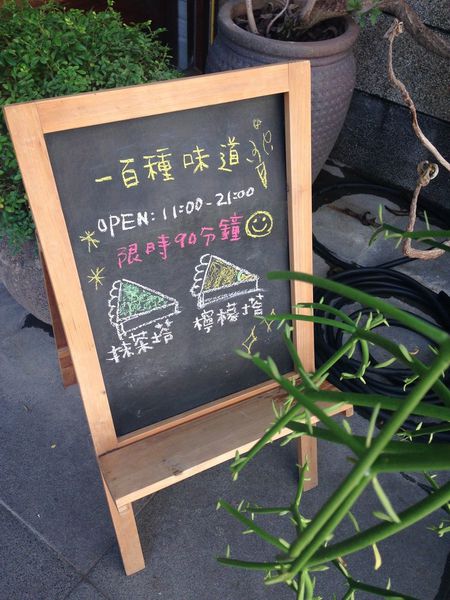 一百種味道
OPEN: 11:00-21:00
限時90分鐘
抹茶塔
檸檬塔